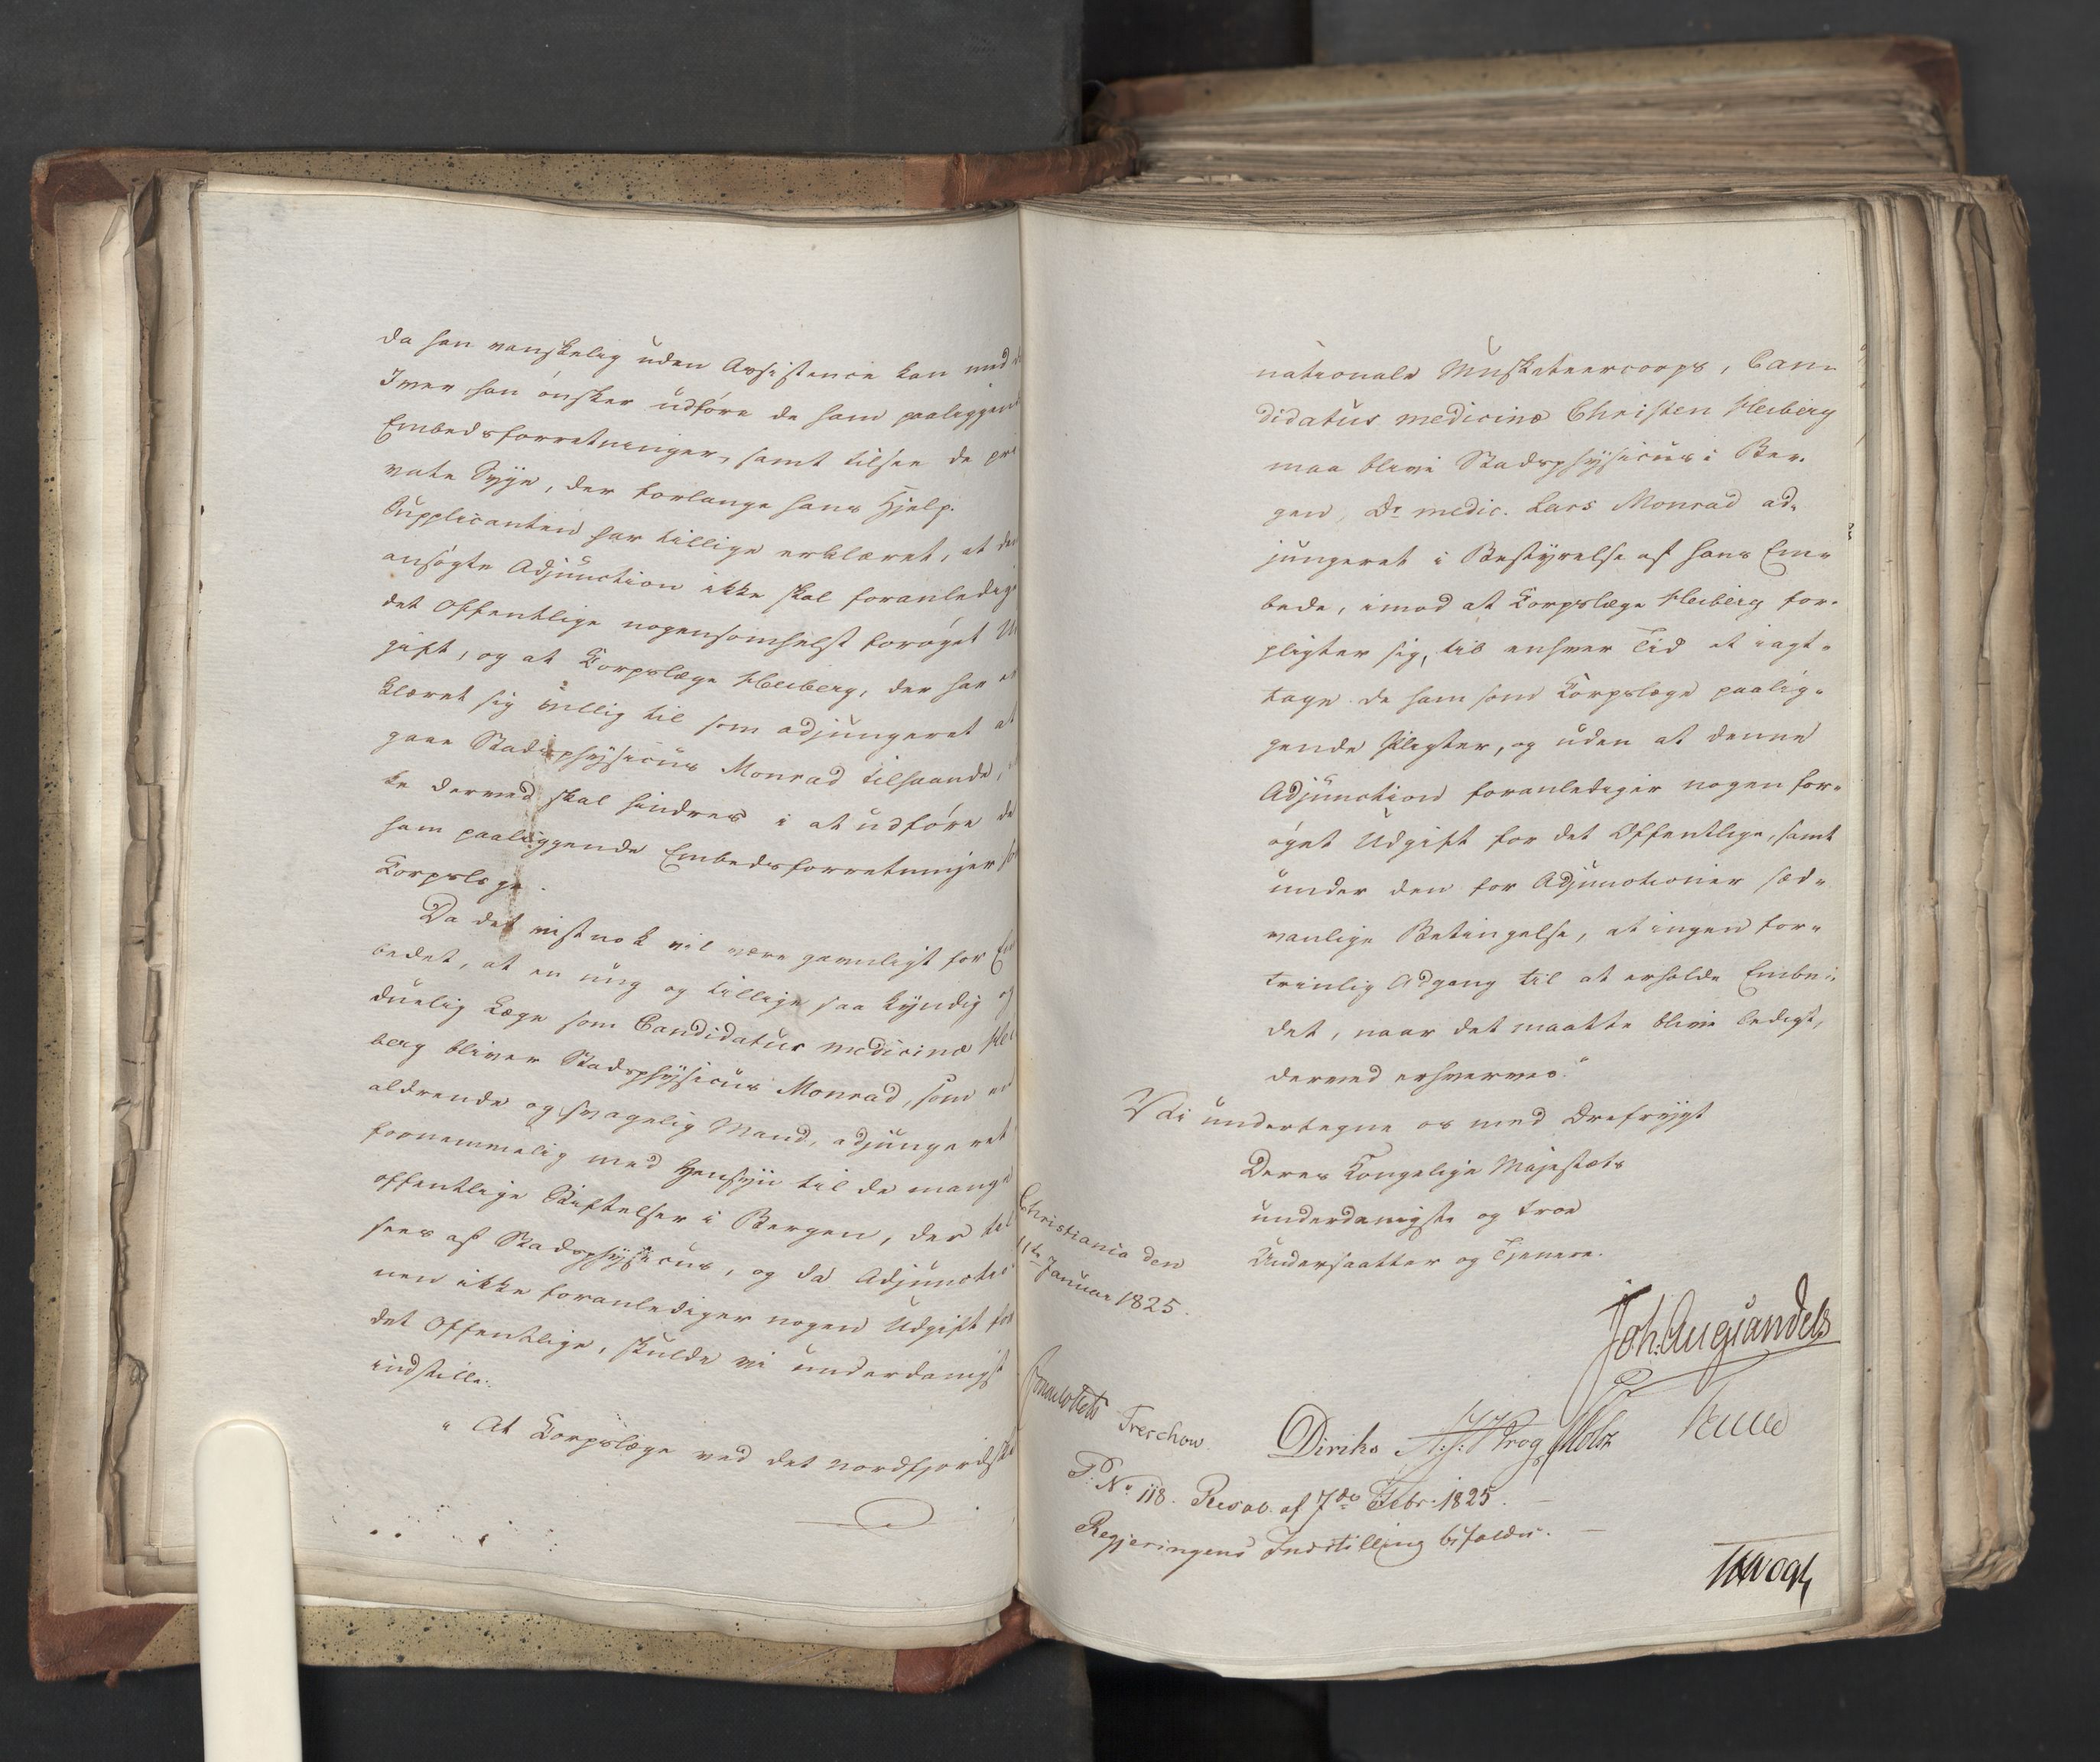 da han vanskelig uden Assistence kan med d
Iver han ønsker udføre de ham paaliggend
Embedsforretninger, samt tilsee de pri
vate Syge, der forlange hans Hjelp.
Supplicanten har tillige erklæret, at den
ansøgte Adjunction ikke skal foranledige
det Offentlige nogensomhelst forøget Ud
gift, og at Korpslæge Heiberg, der har er
klæret sig villig til som adjungeret at
gaae Stadsphysicus Monrad tilhaande,
ke derved skal hindres i at udføre de
ham paaliggende Embedsforretninger so
Korpslæge.
Da det vistnok vil være gavnligt for Em
bedet, at en ung og tillige saa kyndig og
duelig Læge som Candidatus medicinæ Hei
berg bliver Stadsphysicus Monrad, som en
aldrende og svagelig Mand, adjungeret
fornemmelig med Hensyn til de mange
offentlige Stiftelser i Bergen, der til
sees af Stadsphysicus, og da Adjunctio
nen ikke foranlediger nogen Udgift for
det Offentlige, skulde vi underdanigst
indstille:
" At Korpslæge ved det nordfjordske
nationale Musketeercorps, Can-
didatus medicinæ Christen Heiberg
maa blive Stadsphysicus i Ber-
gen, Dr medic. Lars Monrad ad-
jungeret i Bestyrelse af hans Em-
bede, imod at Korpslæge Heiberg for-
pligter sig, til enhver Tid at iagt-
tage de ham som Korpslæge paalig-
gende Pligter, og uden at denne
Adjunction foranlediger nogen for-
øget Udgift for det Offentlige, samt
under den for Adjunctioner sæd-
vanlige Betingelse, at ingen for-
trinlig Adgang til at erholde Embe-
det, naar det maatte blive ledigt,
derved erhverves."
Vi undertegne os med Ærefrygt
Deres Kongelige Majestæts
underdanigste og troe
Undersaatter og Tjenere.
Christiania den
11te Januar 1825.
Joh. Aug Sandels
Sommerfeldt Treschow. Diriks J. H. Krog Holst
P: No 118. Resol. af 7de Febr. 1825.
Regjeringens Indstilling bifaldes.